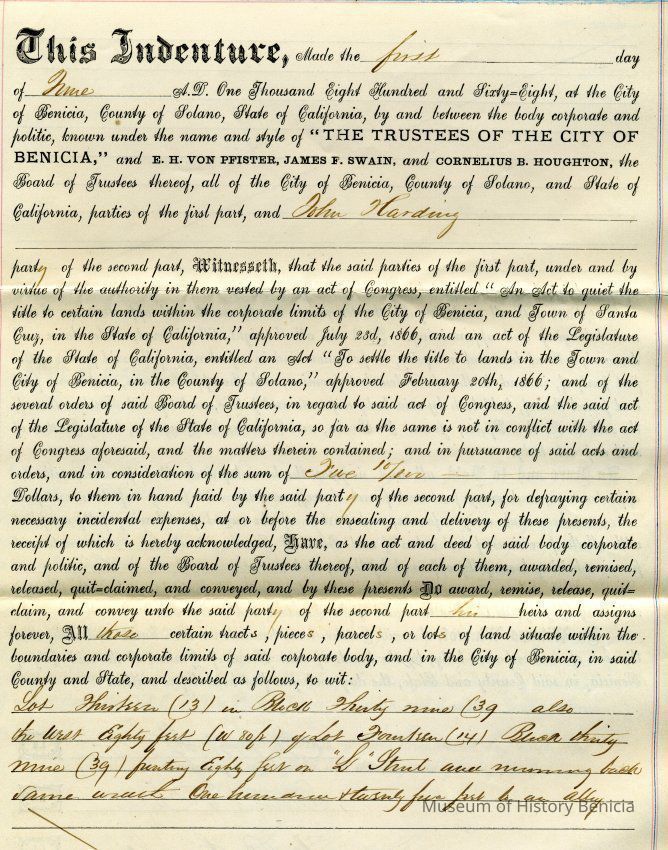 This Indenture, Made the first day
of June A.D. One Thousand Eight Hundred and Sixty=Eight, at the City
of Benicia, County of Solano, State of California, by and between the body corporate and
politic, known under the name and style of "THE TRUSTEES OF THE CITY OF
BENICIA," and E. H. VON PFISTER, JAMES F. SWAIN, and CORNELIUS B. HOUGHTON, the
Board of Trustees thereof, all of the City of Benicia, County of Solano, and State of
California, parties of the first part, and John Harding
party of the second part, Witnesseth, that the said parties of the first part, under and by
virtue of the authority in them vested by an act of Congress, entitled "An Act to quiet the
title to certain lands within the corporate limits of the City of Benicia, and Town of Santa
Cruz, in the State of California," approved July 23d, 1866, and an act of the Legislature
of the State of California, entitled an Act "To settle the title to lands in the Town and
City of Benicia, in the County of Solano," approved February 20th, 1866; and of the
several orders of said Board of Trustees, in regard to said act of Congress, and the said act
of the Legislature of the State of California, so far as the same is not in conflict with the act
of Congress aforesaid, and the matters therein contained; and in pursuance of said acts and
orders, and in consideration of the sum of
Dollars, to them in hand paid by the said party of the second part, for defraying certain
necessary incidental expenses, at or before the ensealing and delivery of these presents, the
receipt of which is hereby acknowledged, Have, as the act and deed of said body corporate
and politic, and of the Board of Trustees thereof, and of each of them, awarded, remised,
released, quit=claimed, and conveyed, and by these presents Do award, remise, release, quit=
claim, and convey unto the said party of the second part his heirs and assigns
forever, All those certain tracts, pieces, parcels, or lots of land situate within the
boundaries and corporate limits of said corporate body, and in the City of Benicia, in said
County and State, and described as follows, to wit:
Lot Thirteen (13) in Block Thirty nine (39 also
the West Eighty feet (W 80 f) of Lot Fourteen (14) Block thirty
nine (39) fronting Eighty feet on "L" Street and running back
same width One hundred & twenty five feet to an alley
Museum of History Benicia